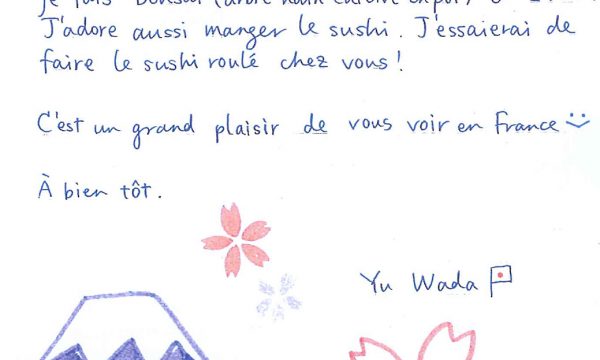 Je fais (arbre nain
J'adore aussi manger le sushi. J'essaierai de
faire le sushi roulé chez vous!
C'est un grand plaisir de vous voir en France
À bien tôt.
Yu Wada